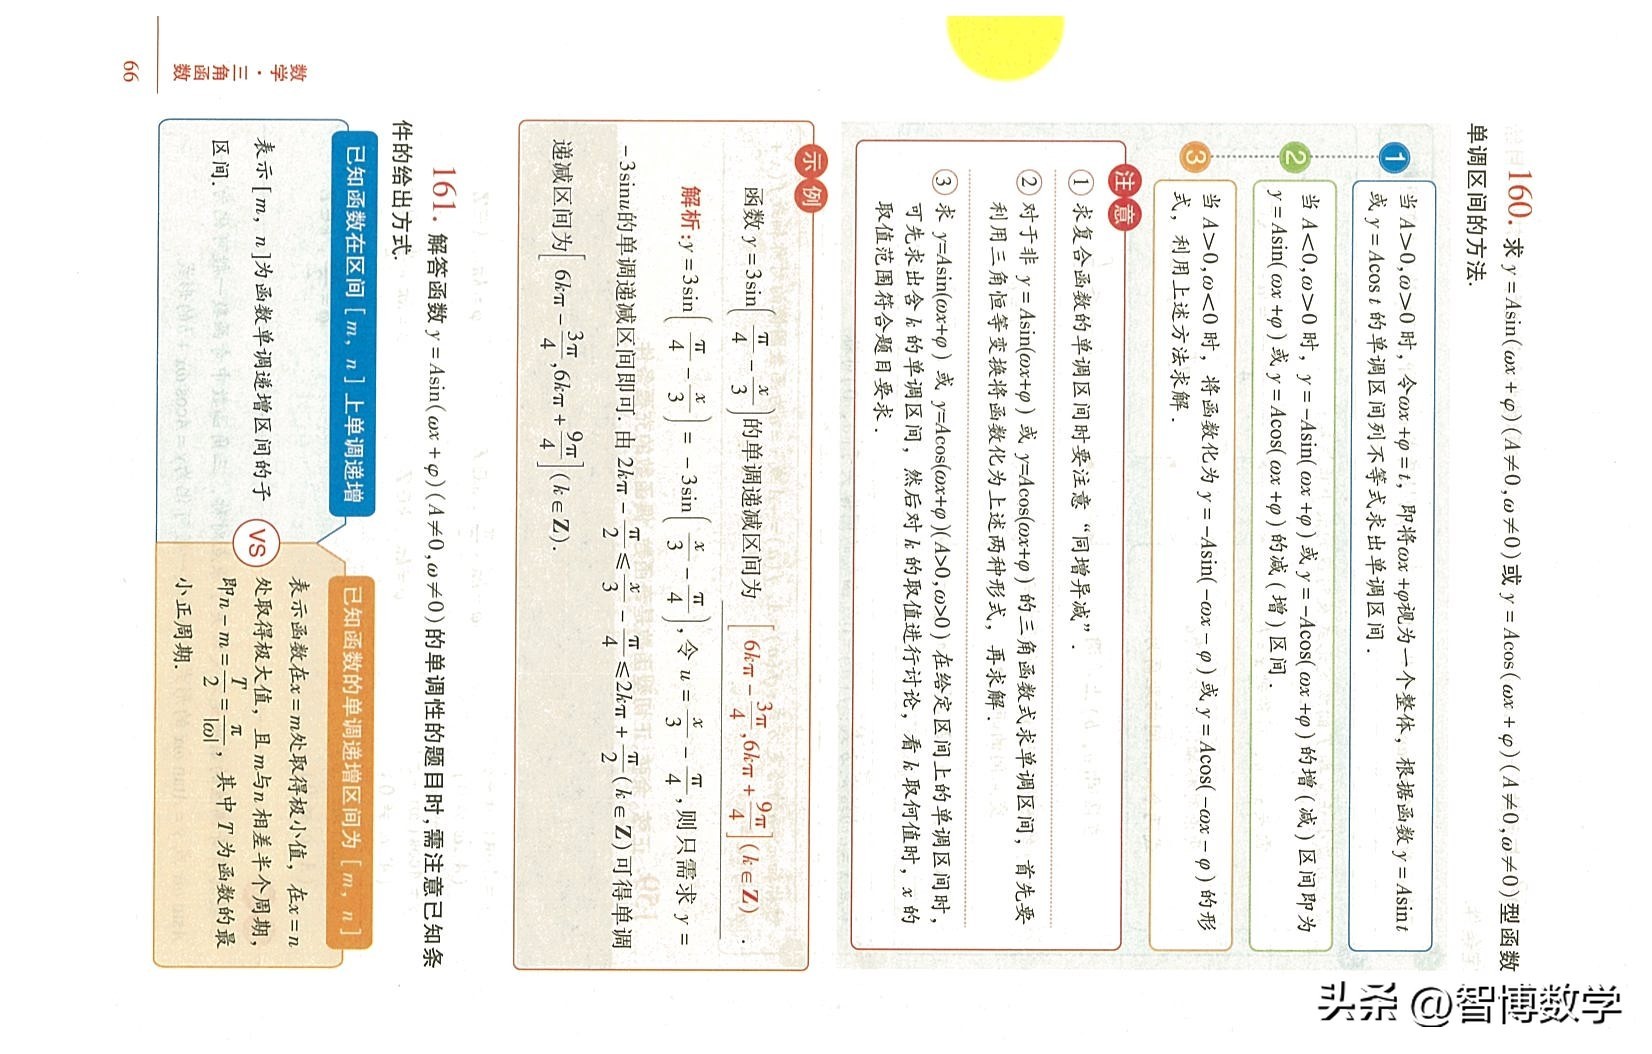 160. 求 y=Asin(ωx+φ)(A≠0,ω≠0)或 y=Acos(ωx+φ)(A≠0,ω≠0)型函数
单调区间的方法.
1
当 A>0,ω>0 时，令ωx+φ=t，即将ωx+φ视为一个整体，根据函数 y=Asin t
或 y=Acos t 的单调区间列不等式求出单调区间.
2
当 A<0,ω>0 时，y=-Asin(ωx+φ)或 y=-Acos(ωx+φ)的增(减)区间即为
y=Asin(ωx+φ)或 y=Acos(ωx+φ)的减(增)区间.
3
当 A>0,ω<0 时，将函数化为 y=-Asin(-ωx-φ)或 y=Acos(-ωx-φ)的形
式，利用上述方法求解.
注意
① 求复合函数的单调区间时要注意“同增异减”.
② 对于非 y=Asin(ωx+φ) 或 y=Acos(ωx+φ) 的三角函数式求单调区间，首先要
利用三角恒等变换将函数化为上述两种形式，再求解.
③ 求 y=Asin(ωx+φ) 或 y=Acos(ωx+φ)(A>0,ω>0) 在给定区间上的单调区间时，
可先求出含 k 的单调区间，然后对 k 的取值进行讨论，看 k 取何值时，x 的
取值范围符合题目要求.
示例
函数 y=3sin(π/4-x/3)的单调递减区间为 [6kπ-3π/4,6kπ+9π/4](k∈Z) .
解析:y=3sin(π/4-x/3)=-3sin(x/3-π/4),令 u=x/3-π/4,则只需求 y=
-3sinu的单调递减区间即可.由 2kπ-π/2≤x/3-π/4≤2kπ+π/2(k∈Z)可得单调
递减区间为[6kπ-3π/4,6kπ+9π/4](k∈Z).
161. 解答函数 y=Asin(ωx+φ)(A≠0,ω≠0)的单调性的题目时,需注意已知条
件的给出方式.
已知函数在区间[m，n]上单调递增
表示[m，n]为函数单调递增区间的子
区间.
VS
已知函数的单调递增区间为[m，n]
表示函数在x=m处取得极小值，在x=n
处取得极大值，且m与n相差半个周期，
即n-m=T/2=π/|ω|，其中T为函数的最
小正周期.
数学·三角函数
66
头条 @智博数学